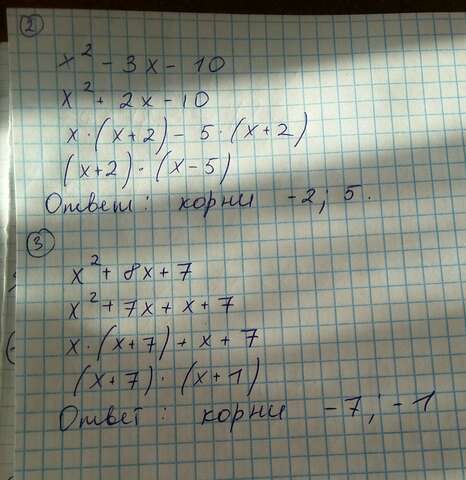 2
x² - 3x - 10
x² + 2x - 10
x · (x+2) - 5 · (x+2)
(x+2) · (x-5)
Ответ: корни -2; 5.
3
x² + 8x + 7
x² + 7x + x + 7
x · (x+7) + x + 7
(x+7) · (x+1)
Ответ: корни -7; -1